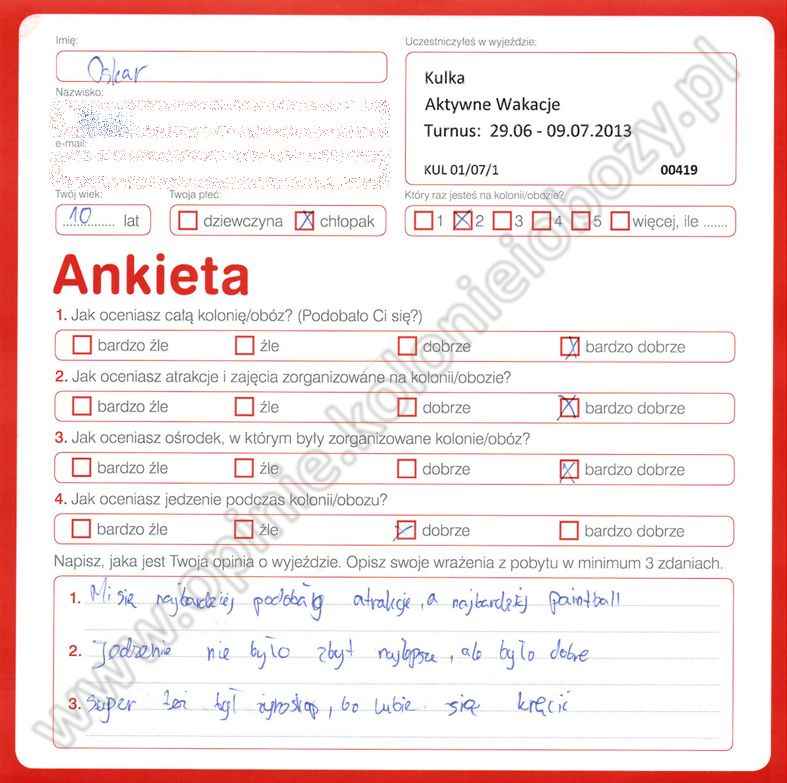 Imię:
Oskar
Uczestniczyłeś w wyjeździe:
Kulka
Aktywne Wakacje
Turnus: 29.06 - 09.07.2013
KUL 01/07/1 00419
Nazwisko:
e-mail:
Twój wiek:
10 lat
Twoja płeć:
dziewczyna chłopak
Który raz jesteś na kolonii/obozie?
1 2 3 4 5 więcej, ile .......
Ankieta
1. Jak oceniasz całą kolonię/obóz? (Podobało Ci się?)
bardzo źle źle dobrze bardzo dobrze
2. Jak oceniasz atrakcje i zajęcia zorganizowane na kolonii/obozie?
bardzo źle źle dobrze bardzo dobrze
3. Jak oceniasz ośrodek, w którym były zorganizowane kolonie/obóz?
bardzo źle źle dobrze bardzo dobrze
4. Jak oceniasz jedzenie podczas kolonii/obozu?
bardzo źle źle dobrze bardzo dobrze
Napisz, jaka jest Twoja opinia o wyjeździe. Opisz swoje wrażenia z pobytu w minimum 3 zdaniach.
1. Mi się najbardziej atrakcje, a najbardziej paintball
2. Jedzenie nie było zbyt najlepsze, ale było dobre
3. Super też był żyroskop, bo lubie się kręcić
www.opinie.kolonieiobozy.pl